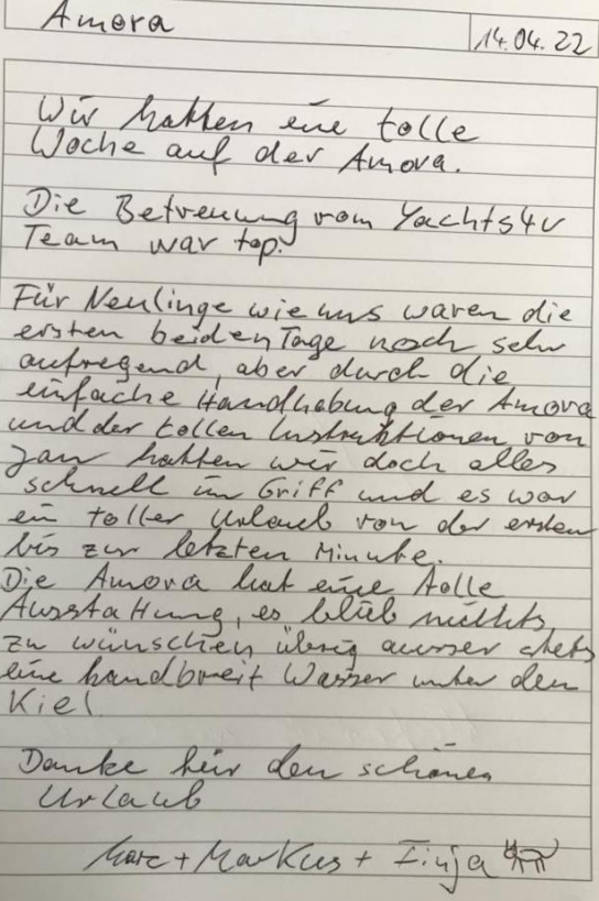 Amora
14.04.22
Wir hatten eine tolle
Woche auf der Amora.
Die Betreuung vom Yachts4u
Team war top.
Für Neulinge wie uns waren die
ersten beiden Tage noch sehr
aufregend, aber durch die
einfache Handhabung der Amora
und der tollen Instruktionen von
Jan hatten wir doch alles
schnell im Griff und es war
ein toller Urlaub von der ersten
bis zur letzten Minute.
Die Amora hat eine tolle
Ausstattung, es blieb nichts
zu wünschen übrig ausser stets
eine handbreit Wasser unter den
Kiel
Danke für den schönen
Urlaub
Marc + Markus + Finja